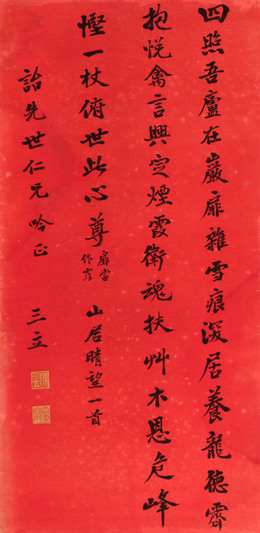 四照吾廬在巖扉雜雪痕深居養龍德霽
抱悅禽言興定煙霞衛魂扶艸木恩危峰
慳一杖俯世此心尊 扉當作霏 山居晴望一首
詒先世仁兄吟正 三立